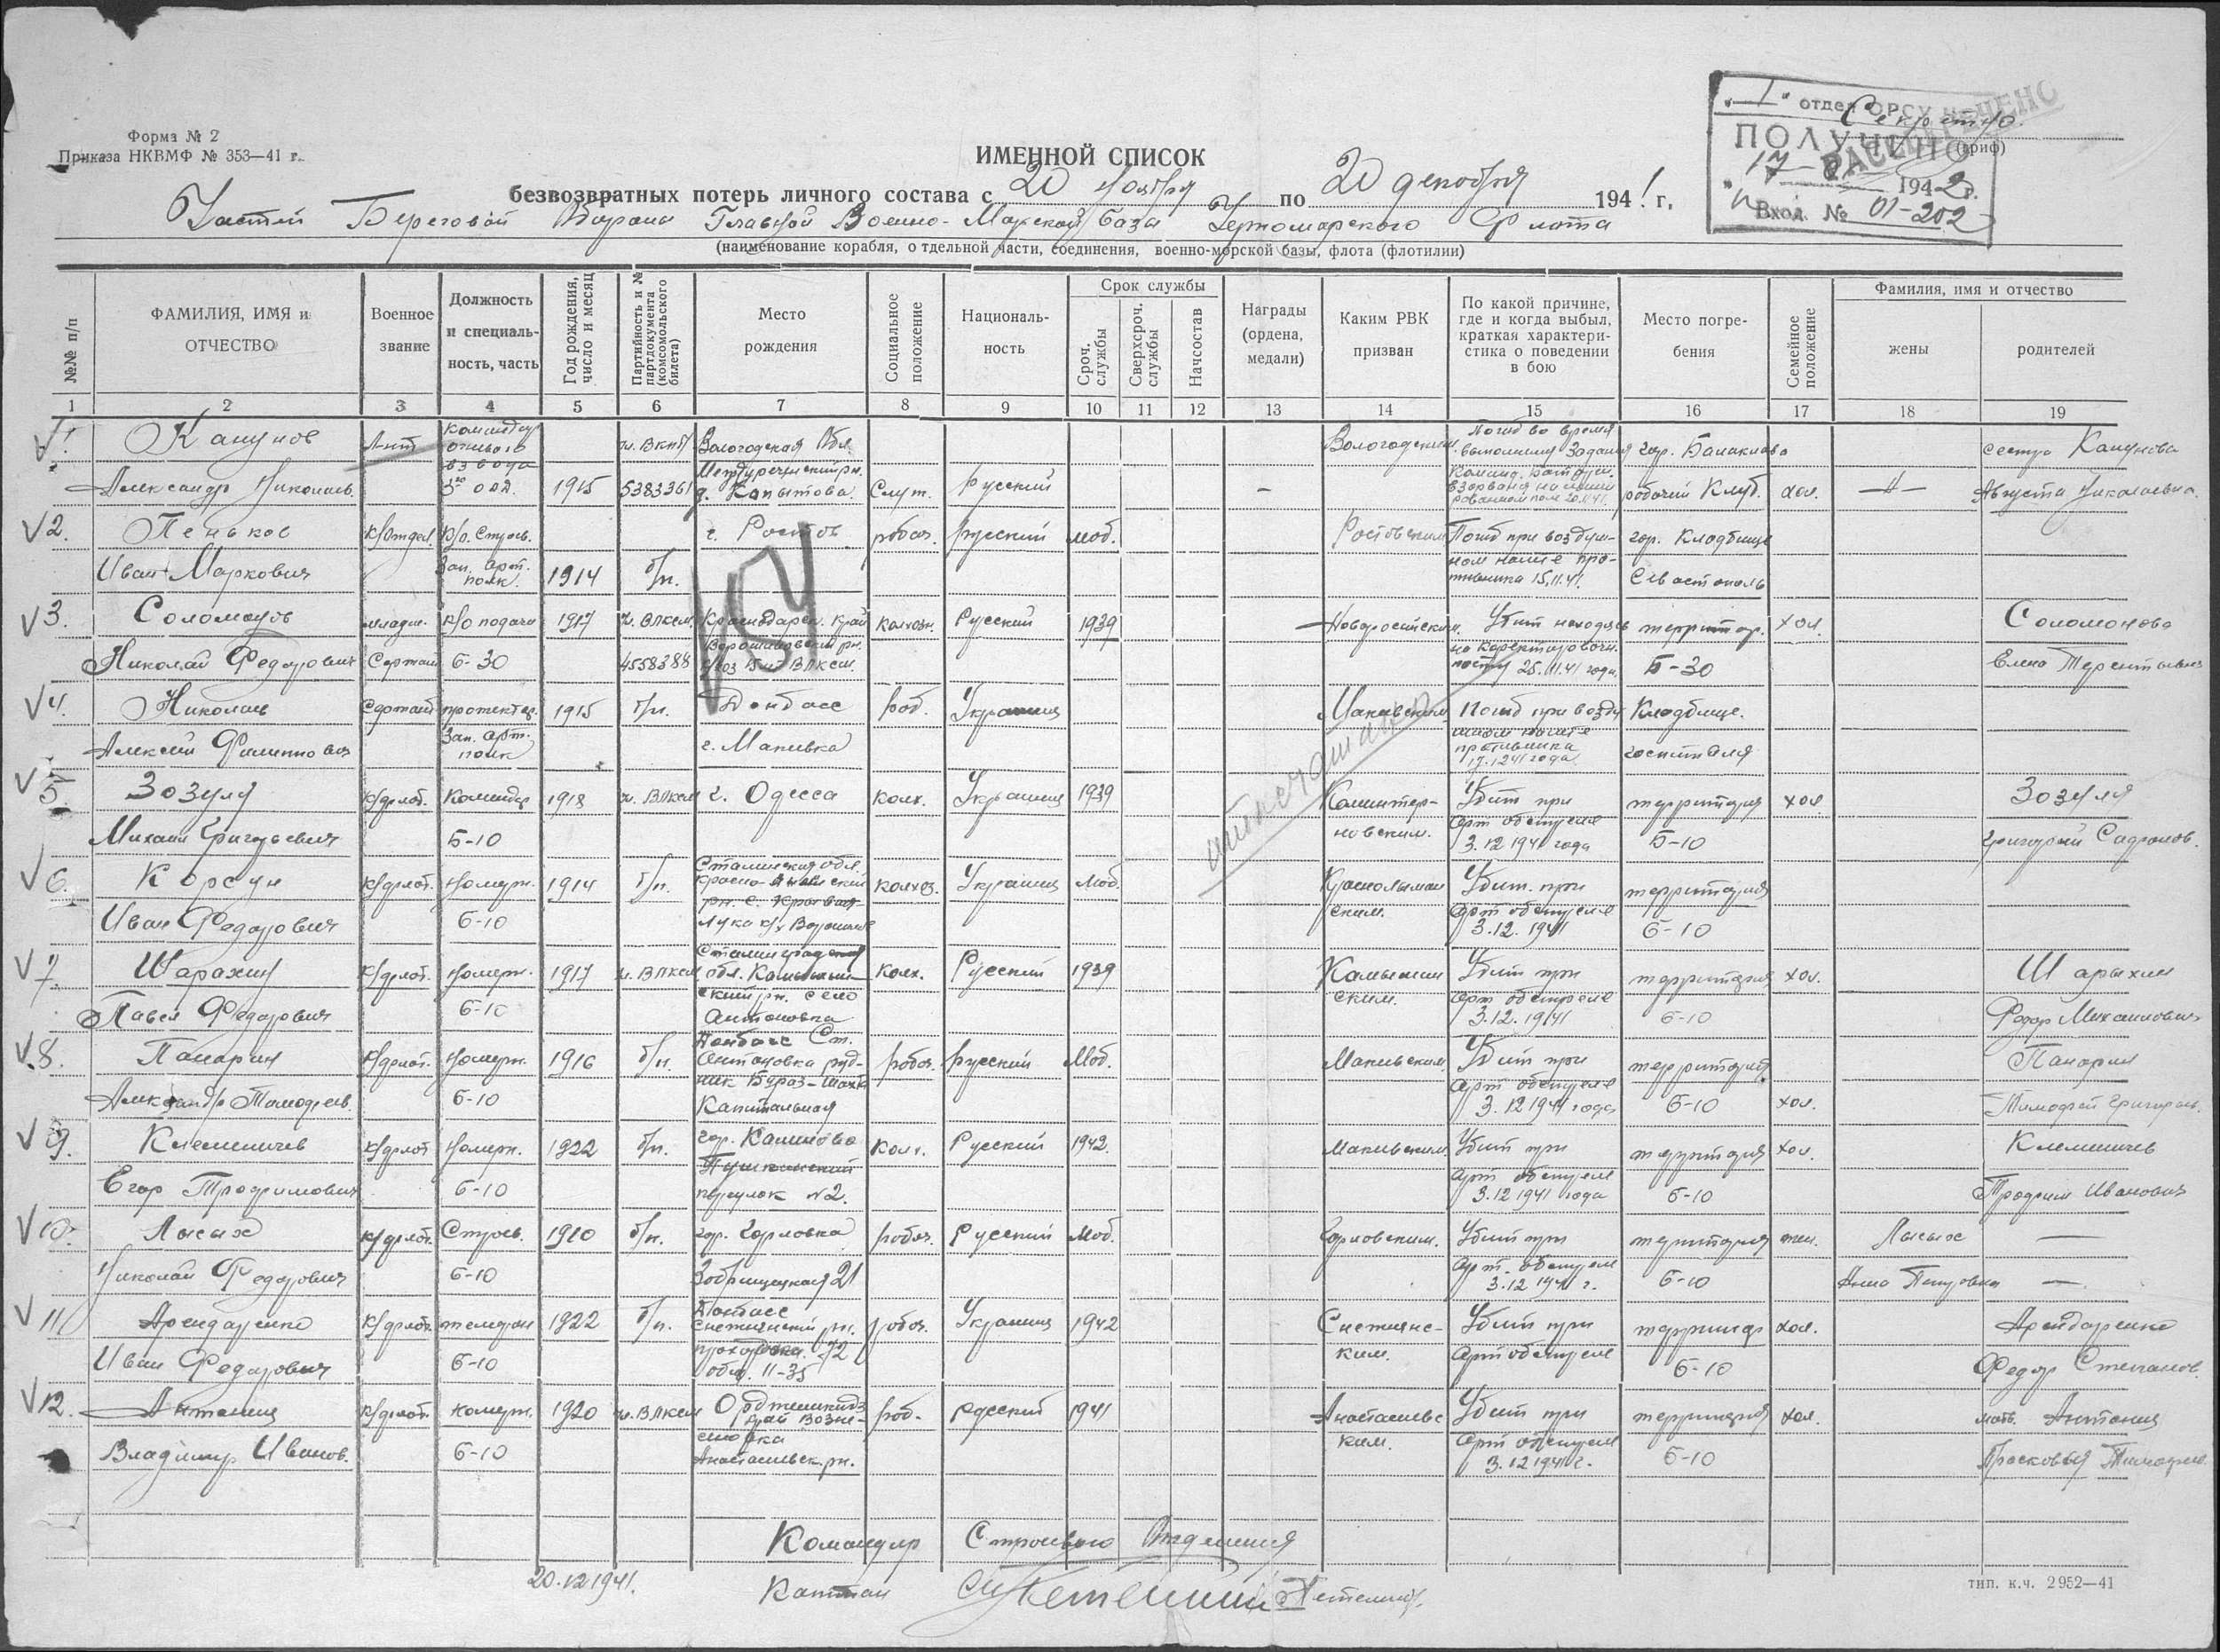 Форма № 2
Приказа НКВМФ № 353—41 г.
"1" отдел ОРСУ
Секретно.
(гриф)
РАССЕКРЕЧЕНО
ПОЛУЧЕНО
17 1942 г.
Вход. № 01-202
ИМЕННОЙ СПИСОК
безвозвратных потерь личного состава с 20 ноября по 20 декабря 1941 г.
Частей Береговой Обороны Главной Военно-Морской базы Черноморского Флота
(наименование корабля, отдельной части, соединения, военно-морской базы, флота (флотилии)
№№ п/п
ФАМИЛИЯ, ИМЯ и ОТЧЕСТВО
Военное звание
Должность и специальность, часть
Год рождения, число и месяц
Партийность и № партдокумента (комсомольского билета)
Место рождения
Социальное положение
Национальность
Срок службы
Сроч. службы
Сверхсроч. службы
Начсостав
Награды (ордена, медали)
Каким РВК призван
По какой причине, где и когда выбыл, краткая характеристика о поведении в бою
Место погребения
Семейное положение
Фамилия, имя и отчество
жены
родителей
1 2 3 4 5 6 7 8 9 10 11 12 13 14 15 16 17 18 19
1. Капунов Л-нт командир взвода ч. ВКПб Вологодская Обл. Вологодским Погиб во время выполнения задания гор. Балаклава сестра Капунова
Александр Николаев. 1915 5383361 Междуреченский рн. д. Копытова Служ. Русский — взорвался на минированном поле рабочий Клуб. хол. —"— Августа Николаевна
2. Пеньков К/отдел. К/о. Строев. г. Ростов рабоч. Русский моб. Ростовским Погиб при воздуш- гор. Кладбище
Иван Маркович Зап. Арт. полк. 1914 б/п. ном налете противника 15.11.41. Севастополь
3. Соломонов младш. К/о подачи 1917 ч. ВЛКСМ. Краснодарск. край колхозн. Русский 1939 Новоросийским. Убит находясь территор. хол. Соломонова
Николай Федорович Сержант Б-30 4558388 Ворошиловский рн. на коректировочн. посту 25.11.41 года. Б-30 Елена Терентьевна
4. Николаев Сержант 1915 б/п. Донбасс раб. Украинец Макеевским Погиб при возду- Кладбище.
Алексей Филиппович Зап. Арт. полк г. Макивка шном налете противника 17.12.41 года. госпиталя
5. Зозуля К/флот. Командор 1918 ч. ВЛКСМ г. Одесса колх. Украинец 1939 Коминтер- Убит при территория хол Зозуля
Михаил Григорьевич Б-10 новским. Арт обстреле 3.12 1941 года Б-10 Григорий
6. Корсун К/флот. Номерн. 1914 б/п. Сталинская обл. колхоз. Украинец Моб. Краснолыман Убит. при территория
Иван Федорович Б-10 рн. с. Кривая Лука ским. Арт обстреле 3.12. 1941 Б-10
7. Шарахин К/флот. Номерн. 1917 ч. ВЛКСМ Сталинградская обл. Камышин- колх. Русский 1939 Камышин Убит при территория хол. Шарыхин
Павел Федорович Б-10 ский рн. село Антоновка ским. Арт обстреле 3.12. 1941 Б-10 Федор Михаилович
8. Панарин К/флот. Номерн. 1916 б/п. Донбасс Ст. рабоч. Русский Моб. Макеевским. Убит при территория Панарин
Александр Тимофеев. Б-10 Капитальная Арт обстреле 3.12 1941 года Б-10 хол. Тимофей Григорьев.
9. Клеменичев К/флот Номерн. 1922 б/п. гор. колх. Русский 1942. Макеевским. Убит при территория хол. Клеменичев
Егор Трофимович Б-10 Пушкинский переулок №2. Арт обстреле 3.12 1941 года Б-10 Трофим Иванович
10. Лысых К/флот. Строев. 1910 б/п. гор. Горловка рабоч. Русский Моб. Горловским. Убит при территория жен. Лысых —
Николай Федорович Б-10 21 Арт. обстреле 3.12 1941 г. Б-10 Анна —
11 Арендаренко К/флот. телефон 1922 б/п. Донбасс рн. рабоч. Украинец 1942 Снежнянс- Убит при территор хол. Арендаренко
Иван Федорович Б-10 72 11-35 ким. Арт обстреле Б-10 Федор Степанов.
12. Антонец К/флот. номерн. 1920 ч. ВЛКСМ Орджоникидз край раб. Русский 1941 Анастасиевс Убит при территория хол. мать. Антонец
Владимир Иванов. Б-10 Анастасиевск. рн. ким. Арт обстреле 3.12 1941 г. Б-10 Прасковья Тимофеев.
отпечатано
Командир Строевого Отделения
20.12.1941. Капитан
тип. к.ч. 2952—41